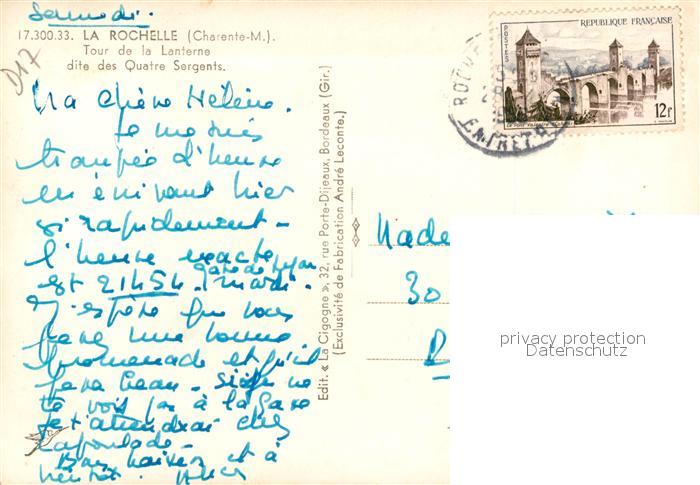 Samedi.
17.300.33. LA ROCHELLE (Charente-M.).
Tour de la Lanterne
dite des Quatre Sergents.
D17
Ma Chère Hélène.
Je me suis
trompée d'heure
en écrivant hier
si rapidement -
l'heure exacte
est 21h54 gare de Lyon mardi.
J'espère que vous
ferez une bonne
promenade et qu'il
fera beau - si je ne
te vois pas à la gare
je t'attendrai chez
Lapoulade -
Bons baisers et à
bientôt.
Edit. « La Cigogne », 32, rue Porte-Dijeaux, Bordeaux (Gir.)
(Exclusivité de Fabrication André Leconte.)
REPUBLIQUE FRANÇAISE
POSTES
12F
ENTREPÔT
Made
30
privacy protection
Datenschutz